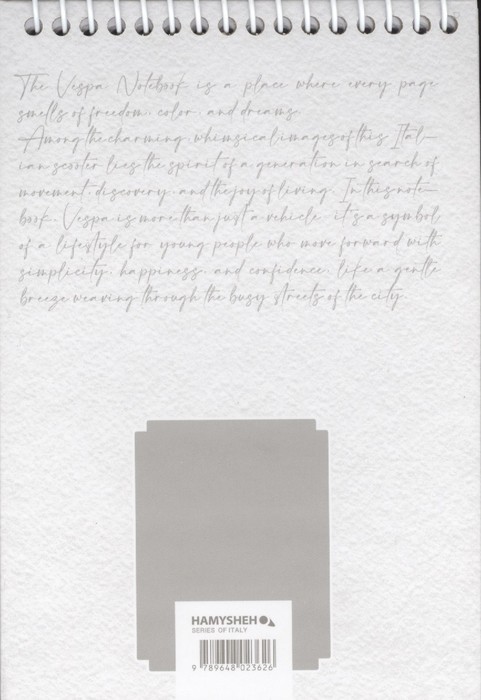 The Vespa Notebook is a place where every page
smells of freedom, color, and dreams.
Among the charming, whimsical images of this Ital-
ian scooter lies the spirit of a generation in search of
movement, discovery, and the joy of living. In this note-
book, Vespa is more than just a vehicle; it's a symbol
of a lifestyle for young people who move forward with
simplicity, happiness, and confidence, like a gentle
breeze weaving through the busy streets of the city.
HAMYSHEH
SERIES OF ITALY
9 789648 023626